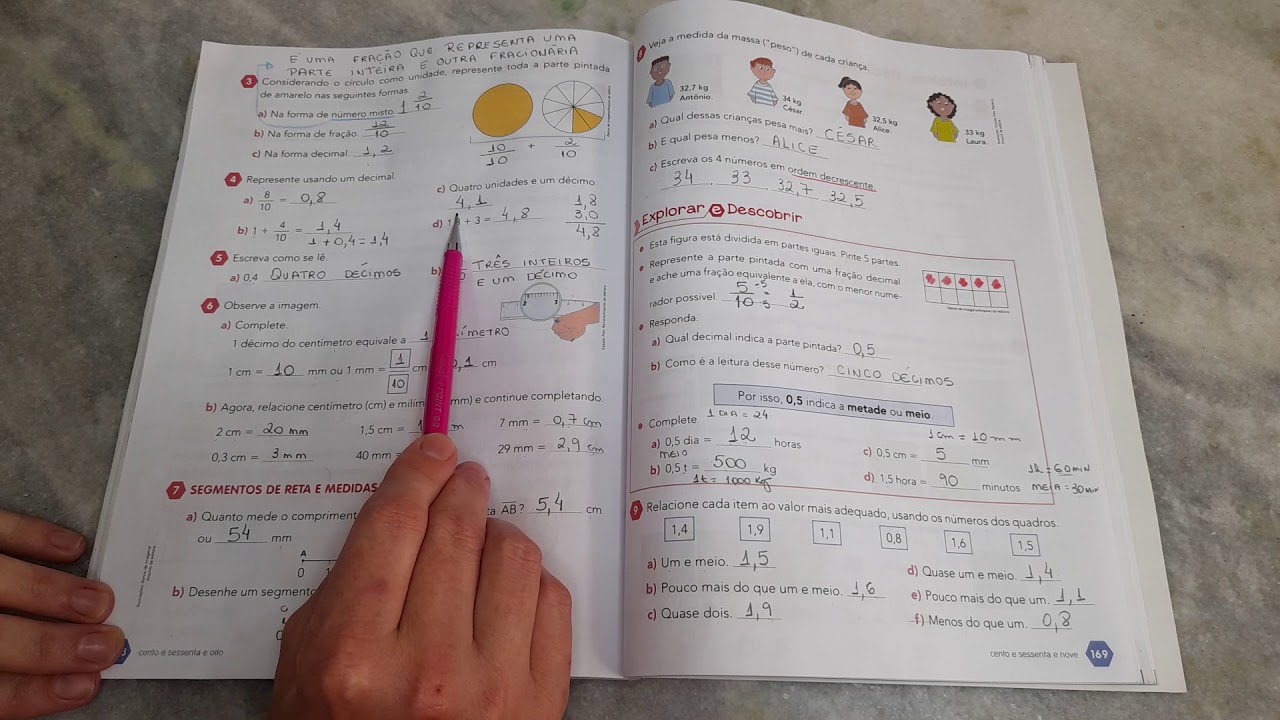 É UMA FRAÇÃO QUE REPRESENTA UMA
PARTE INTEIRA E OUTRA FRACIONÁRIA
3 Considerando o círculo como unidade, represente toda a parte pintada
de amarelo nas seguintes formas.
a) Na forma de número misto. 1 2/10
b) Na forma de fração. 12/10
c) Na forma decimal. 1,2
10/10 + 2/10
4 Represente usando um decimal.
a) 8/10 = 0,8
b) 1 + 4/10 = 1,4
1 + 0,4 = 1,4
c) Quatro unidades e um décimo.
4,1
d) + 3 = 4,8
1,8
3,0
4,8
5 Escreva como se lê.
a) 0,4 QUATRO DÉCIMOS
b) TRÊS INTEIROS
E UM DÉCIMO
6 Observe a imagem.
a) Complete.
1 décimo do centímetro equivale a 1
1 cm = 10 mm ou 1 mm = 1/10 cm ,1 cm
b) Agora, relacione centímetro (cm) e mm) e continue completando.
2 cm = 20 mm
1,5 cm =
7 mm = 0,7 cm
0,3 cm = 3 mm
40 mm =
29 mm = 2,9 cm
7 SEGMENTOS DE RETA E MEDIDAS
a) Quanto mede o AB? 5,4 cm
ou 54 mm
A
0
b) Desenhe um
cento e sessenta e oito
8 Veja a medida da massa ("peso") de cada criança.
32,7 kg
Antônio.
34 kg
César.
32,5 kg
Alice.
33 kg
Laura.
a) Qual dessas crianças pesa mais? CÉSAR
b) E qual pesa menos? ALICE
c) Escreva os 4 números em ordem decrescente.
34 33 32,7 32,5
Explorar e Descobrir
Esta figura está dividida em partes iguais. Pinte 5 partes.
Represente a parte pintada com uma fração decimal
e ache uma fração equivalente a ela, com o menor nume-
rador possível. 5/10 ÷5/÷5 1/2
Responda.
a) Qual decimal indica a parte pintada? 0,5
b) Como é a leitura desse número? CINCO DÉCIMOS
Por isso, 0,5 indica a metade ou meio.
Complete. 1 DIA = 24
a) 0,5 dia = 12 horas
MEIO
b) 0,5 t = 500 kg
1t = 1000 kg
1 cm = 10 mm
c) 0,5 cm = 5 mm
d) 1,5 hora = 90 minutos
1h = 60 min
MEIA = 30 min
9 Relacione cada item ao valor mais adequado, usando os números dos quadros.
1,4 1,9 1,1 0,8 1,6 1,5
a) Um e meio. 1,5
b) Pouco mais do que um e meio. 1,6
c) Quase dois. 1,9
d) Quase um e meio. 1,4
e) Pouco mais do que um. 1,1
f) Menos do que um. 0,8
cento e sessenta e nove 169